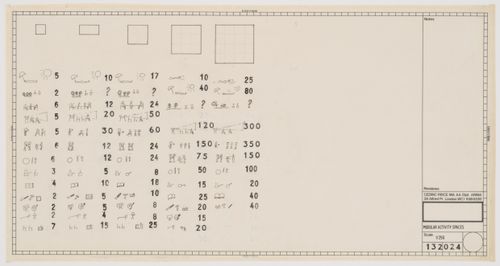 Notes
5 10 17 10 25
2 ? ? 40 80
6 12 24 ? ?
5 20 50
5 30 60 120 300
6 12 24 150 350
6 12 24 75 150
3 5 8 50 100
4 10 18 15 20
2 5 10 25 40
2 5 8 20 40
2 4 8 15
7 15 25 20
Revisions
CEDRIC PRICE MA AA Dipl ARIBA
MODULAR ACTIVITY SPACES
Scale
132024